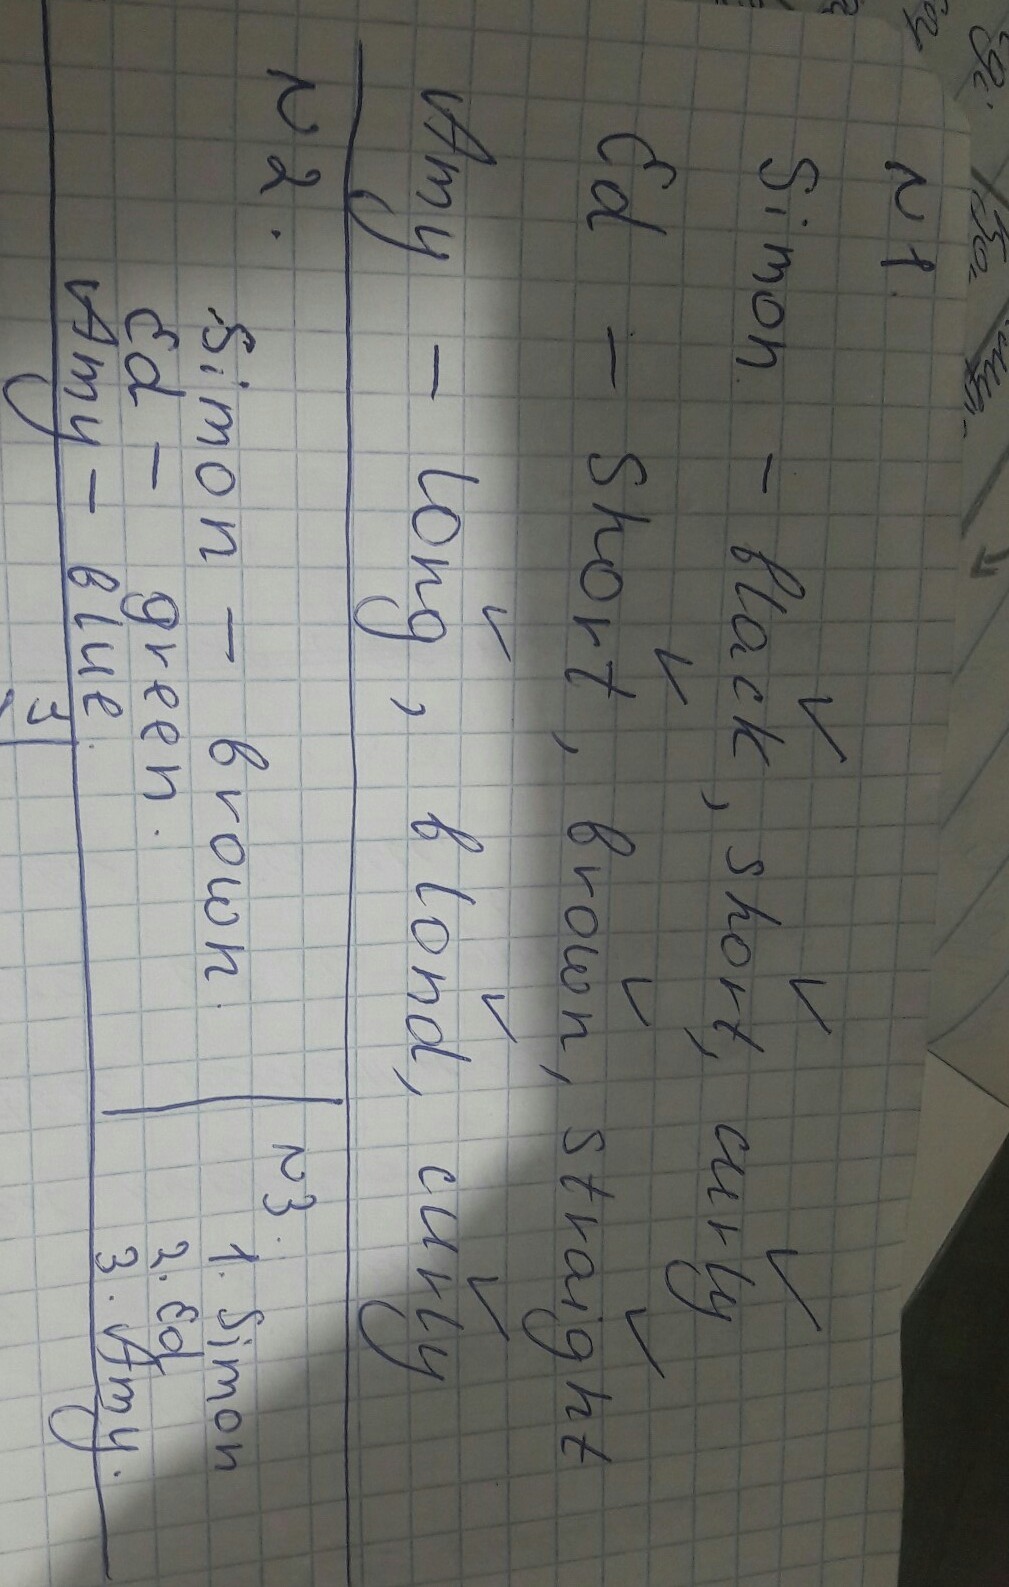 N1.
Simon - black, short, curly
Ed - short, brown, straight
Amy - long, blond, curly
N2.
Simon - brown.
Ed - green.
Amy - blue.
N3.
1. Simon
2. Ed
3. Amy.
3